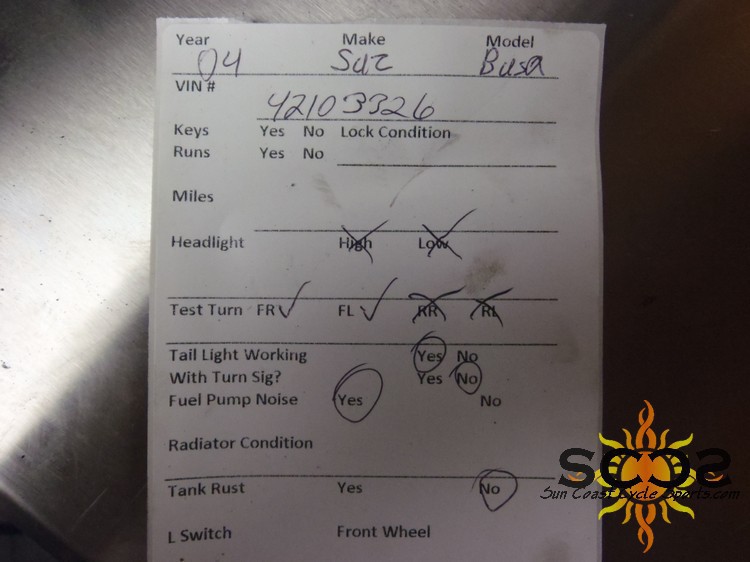 Year Make Model
04 Suz Busa
VIN #
42103326
Keys Yes No Lock Condition
Runs Yes No
Miles
Headlight High Low
Test Turn FR ✓ FL ✓ RR RL
Tail Light Working Yes No
With Turn Sig? Yes No
Fuel Pump Noise Yes No
Radiator Condition
Tank Rust Yes No
L Switch Front Wheel
SCCS
Sun Coast Cycle Sports.com